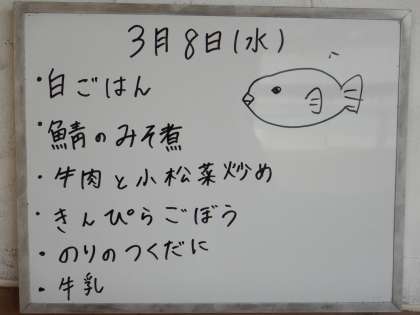 3月8日(水)
・白ごはん
・鯖のみそ煮
・牛肉と小松菜炒め
・きんぴらごぼう
・のりのつくだに
・牛乳